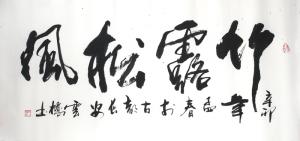 竹露松風
辛卯年孟春於古彭長安雲樵士